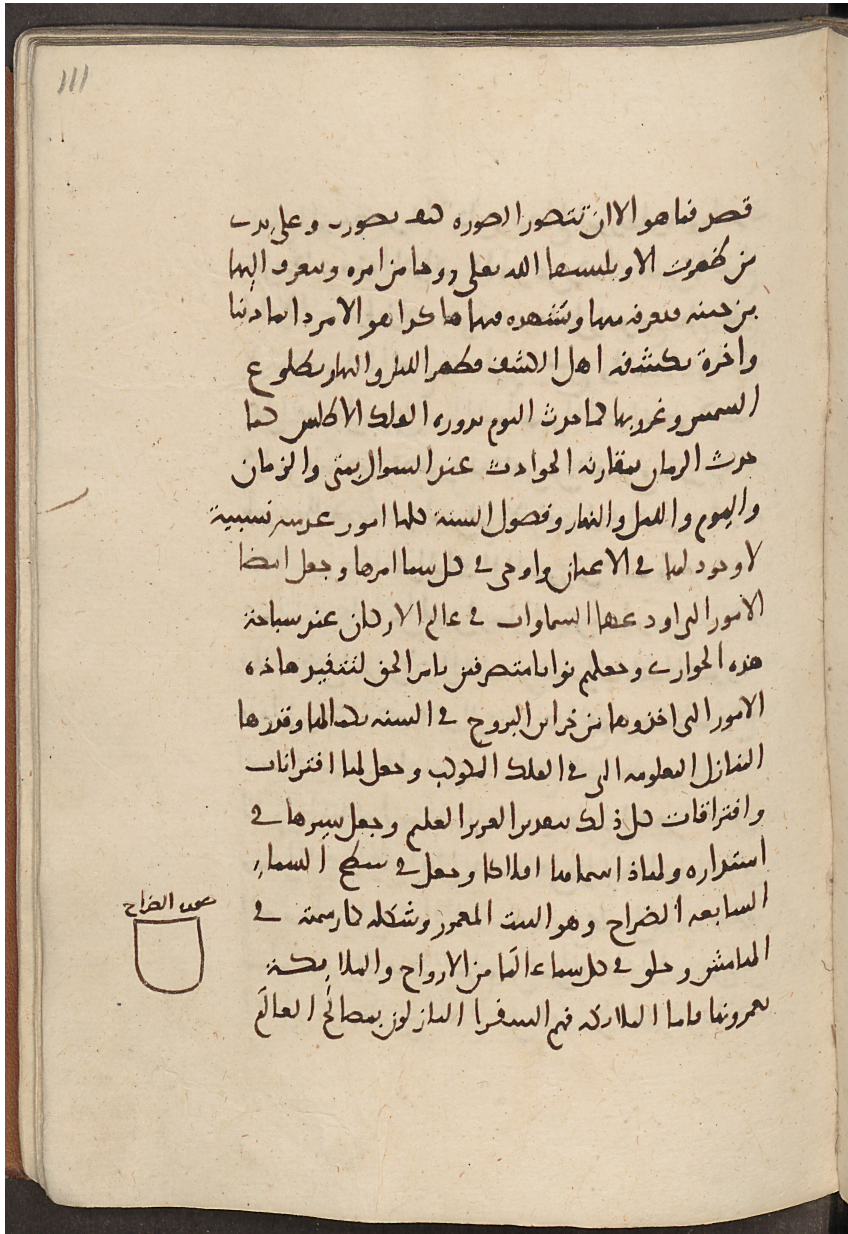 111
قصد فما هو الا ان تتصور الصوره كيف تصورت وعلى يدي
من ظهرت الا ويلبسها الله تعلى روحا من امره ويتعرف اليها
من حينه فتعرفه منها وتشهده فيها هاكذا هو الامر دايما دنيا
واخرة يكشفه اهل الكشف فظهر الليل والنهار بطلوع
الشمس وغروبها كما حدث اليوم بدورة الفلك الاطلس كما
حدث الزمان بمقارنة الحوادث عند السوال بمتى والزمان
واليوم والليل والنهار وفصول السنة كلها امور عدمية نسبية
لا وجود لها في الاعيان واوحى في كل سما امرها وجعل امضا
الامور التي اودعها السماوات في عالم الاركان عند سباحة
هذه الجواري وجعلهم نوابا متصرفين بامر الحق لتنفيذ هاذه
الامور التي اخذوها من خزاين البروج في السنة بكمالها وقدرها
المنازل المعلومة التي في الفلك المكوكب وجعل لها اقترانات
وافتراقات كل ذلك بتقدير العزيز العليم وجعل سيرها في
استدارة ولهاذا سماها افلاكا وجعل في سطح السماء
السابعة الضراح وهو البيت المعمور وشكله كما رسمته في
الهامش وخلق في كل سماء عالما من الارواح والملايكة
يعمرونها فاما الملايكة فهم السفرا النازلون بمصالح العالم
صورة الضراح